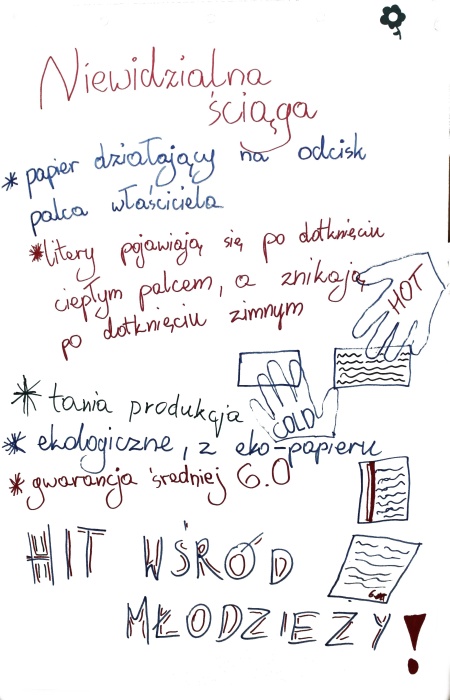 Niewidzialna
ściąga
* papier działający na odcisk
palca właściciela
* litery pojawiają się po dotknięciu
ciepłym palcem, a znikają
po dotknięciu zimnym
HOT
COLD
* tania produkcja
* ekologiczne, z eko-papieru
* gwarancja średniej 6.0
HIT WŚRÓD
MŁODZIEŻY!